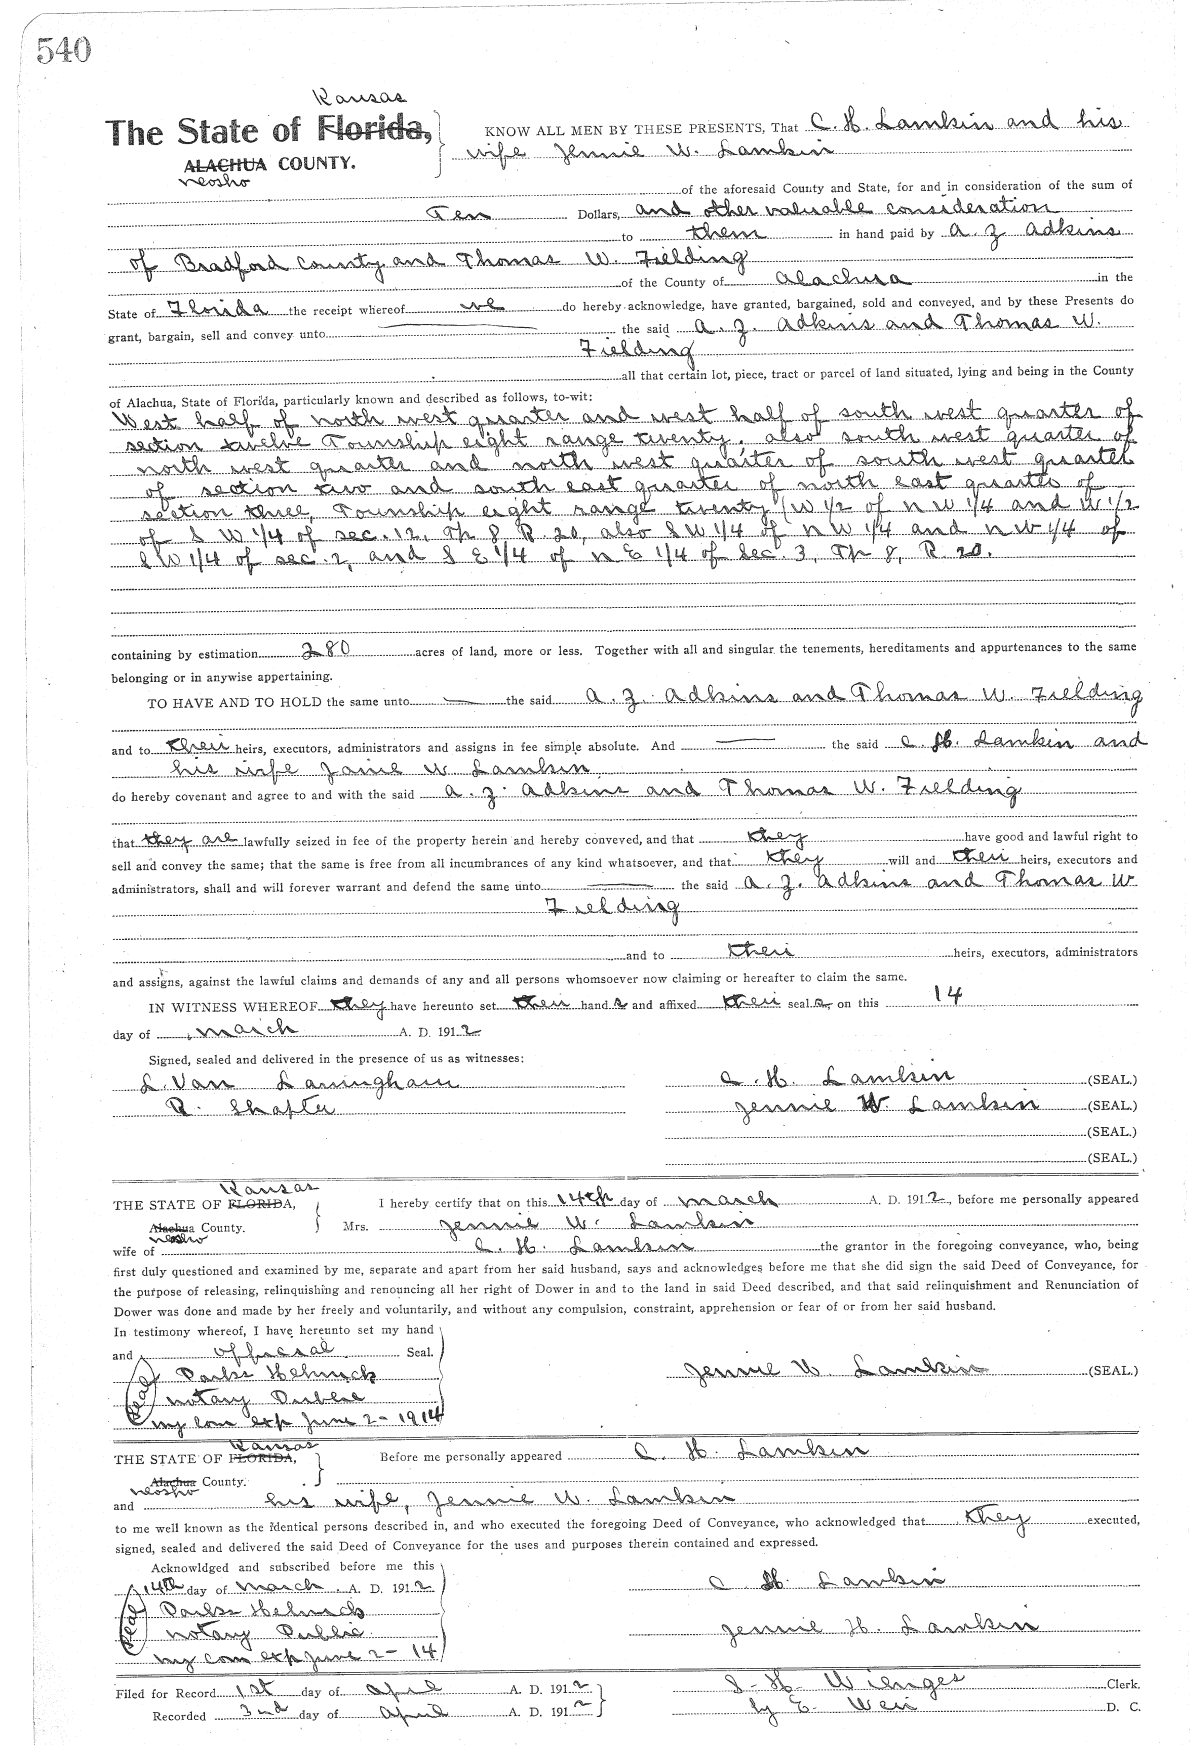 540
Kansas
The State of Florida, KNOW ALL MEN BY THESE PRESENTS, That C. H. Lamkin and his
ALACHUA COUNTY. wife Jennie W. Lamkin
neosho
of the aforesaid County and State, for and in consideration of the sum of
Ten Dollars, and other valuable consideration
to them in hand paid by A. Z Adkins
of Bradford County and Thomas W. Fielding
of the County of Alachua in the
State of Florida the receipt whereof we do hereby acknowledge, have granted, bargained, sold and conveyed, and by these Presents do
grant, bargain, sell and convey unto the said A. Z. Adkins and Thomas W.
Fielding
all that certain lot, piece, tract or parcel of land situated, lying and being in the County
of Alachua, State of Florida, particularly known and described as follows, to-wit:
West half of north west quarter and west half of south west quarter of
section twelve Township eight range twenty, also south west quarter of
north west quarter and north west quarter of south west quarter
of section two and south east quarter of north east quarter of
section three, Township eight range twenty (W 1/2 of n W 1/4 and W 1/2
of S W 1/4 of sec. 12, Tp 8 R. 20, also S W 1/4 of n W 1/4 and n W 1/4 of
S W 1/4 of sec. 2, and S E 1/4 of n E 1/4 of Sec. 3, Tp 8, R 20.
containing by estimation 280 acres of land, more or less. Together with all and singular the tenements, hereditaments and appurtenances to the same
belonging or in anywise appertaining.
TO HAVE AND TO HOLD the same unto the said A. Z. Adkins and Thomas W. Fielding
and to their heirs, executors, administrators and assigns in fee simple absolute. And the said C. H. Lamkin and
his wife Janie W. Lamkin
do hereby covenant and agree to and with the said A. Z. Adkins and Thomas W. Fielding
that they are lawfully seized in fee of the property herein and hereby conveved, and that they have good and lawful right to
sell and convey the same; that the same is free from all incumbrances of any kind whatsoever, and that they will and their heirs, executors and
administrators, shall and will forever warrant and defend the same unto the said A. Z. Adkins and Thomas W
Fielding
and to their heirs, executors, administrators
and assigns, against the lawful claims and demands of any and all persons whomsoever now claiming or hereafter to claim the same.
IN WITNESS WHEREOF they have hereunto set their hand s and affixed their seal s, on this 14
day of march A. D. 191 2
Signed, sealed and delivered in the presence of us as witnesses:
L. Van Laningham C. H. Lamkin (SEAL.)
R. Shafter Jennie W. Lamkin (SEAL.)
(SEAL.)
(SEAL.)
Kansas
THE STATE OF FLORIDA, I hereby certify that on this 14th day of march A. D. 191 2, before me personally appeared
Alachua County. Mrs. Jennie W. Lamkin
neosho
wife of C. H. Lamkin the grantor in the foregoing conveyance, who, being
first duly questioned and examined by me, separate and apart from her said husband, says and acknowledges before me that she did sign the said Deed of Conveyance, for
the purpose of releasing, relinquishing and renouncing all her right of Dower in and to the land in said Deed described, and that said relinquishment and Renunciation of
Dower was done and made by her freely and voluntarily, and without any compulsion, constraint, apprehension or fear of or from her said husband.
In testimony whereof, I have hereunto set my hand
and official Seal.
Seal Parks Helmick Jennie W. Lamkin (SEAL.)
notary Public
my com exp June 2 - 1914
Kansas
THE STATE OF FLORIDA, Before me personally appeared C. H. Lamkin
Alachua County.
neosho
and his wife, Jennie W. Lamkin
to me well known as the identical persons described in, and who executed the foregoing Deed of Conveyance, who acknowledged that they executed,
signed, sealed and delivered the said Deed of Conveyance for the uses and purposes therein contained and expressed.
Acknowldged and subscribed before me this
14th day of march A. D. 191 2 C H. Lamkin
Seal Parks Helmick
notary Public Jennie H. Lamkin
my com exp June 2 - 14
Filed for Record 1st day of april A. D. 191 2 S. H. Wienges Clerk.
Recorded 3nd day of april A. D. 191 2 by E. D. C.